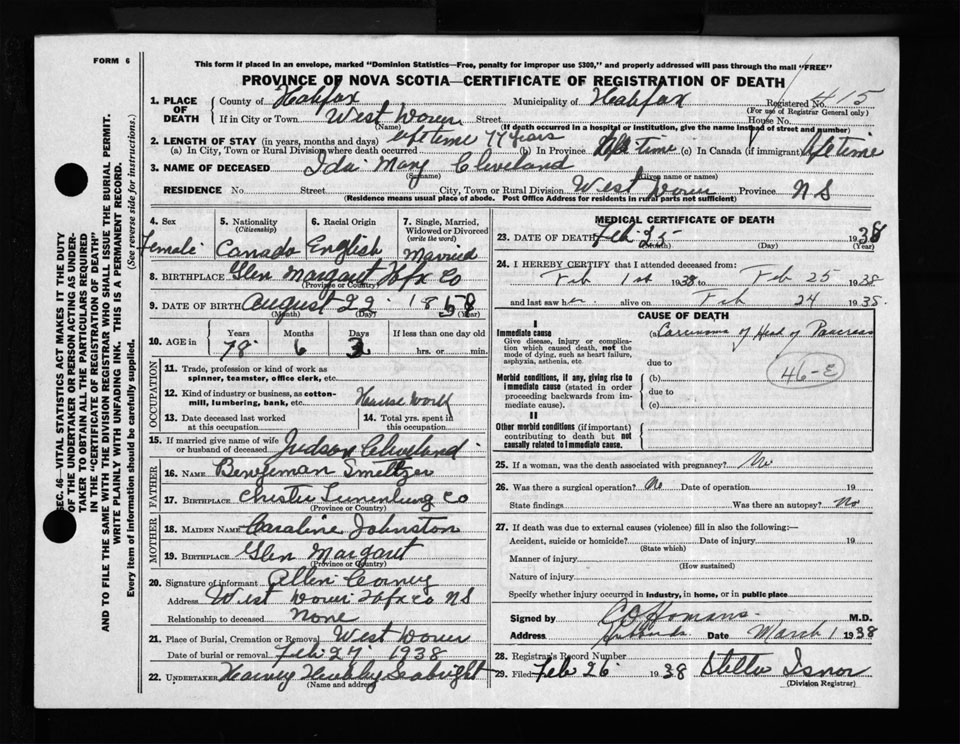 FORM 6
This form if placed in an envelope, marked "Dominion Statistics—Free, penalty for improper use $300," and properly addressed will pass through the mail "FREE"
PROVINCE OF NOVA SCOTIA—CERTIFICATE OF REGISTRATION OF DEATH
1. PLACE OF DEATH County of Halifax Municipality of Halifax Registered No. 415
(For use of Registrar General only)
If in City or Town West Dover Street House No.
(Name) (If death occurred in a hospital or institution, give the name instead of street and number)
2. LENGTH OF STAY (in years, months and days) life time 77 years
(a) In City, Town or Rural Division where death occurred (b) In Province life time (c) In Canada (if immigrant) life time
3. NAME OF DECEASED Ida Mary Cleveland
(Surname) (Given name or names)
RESIDENCE No. Street City, Town or Rural Division West Dover Province N S
(Residence means usual place of abode. Post Office Address for residents in rural parts not sufficient)
SEC. 46—VITAL STATISTICS ACT MAKES IT THE DUTY
OF THE UNDERTAKER OR PERSON ACTING AS UNDER-
TAKER TO OBTAIN ALL THE PARTICULARS REQUIRED
IN THE "CERTIFICATE OF REGISTRATION OF DEATH"
AND TO FILE THE SAME WITH THE DIVISION REGISTRAR WHO SHALL ISSUE THE BURIAL PERMIT.
WRITE PLAINLY WITH UNFADING INK. THIS IS A PERMANENT RECORD.
Every item of information should be carefully supplied. (See reverse side for instructions.)
4. Sex 5. Nationality 6. Racial Origin 7. Single, Married,
(Citizenship) Widowed or Divorced
(write the word)
Female Canada English Married
8. BIRTHPLACE Glen Margaut Hfx Co
(Province or Country)
9. DATE OF BIRTH August 22 1858
(Month) (Day) (Year)
10. AGE in Years Months Days If less than one day old
78 6 3 hrs. or min.
OCCUPATION
11. Trade, profession or kind of work as
spinner, teamster, office clerk, etc.
12. Kind of industry or business, as cotton-
mill, lumbering, bank, etc. House Work
13. Date deceased last worked 14. Total yrs. spent in
at this occupation this occupation
15. If married give name of wife
or husband of deceased Judson Cleveland
FATHER
16. NAME Bengeman Smeltzer
17. BIRTHPLACE Chester Lunenburg Co
(Province or Country)
MOTHER
18. MAIDEN NAME Caroline Johnston
19. BIRTHPLACE Glen Margaut
(Province or Country)
20. Signature of informant Allen
Address West Dover Hfx co N S
Relationship to deceased None
21. Place of Burial, Cremation or Removal West Dover
Date of burial or removal Feb. 27 1938
22. UNDERTAKER Harvey Hubley Seabright
(Name and address)
MEDICAL CERTIFICATE OF DEATH
23. DATE OF DEATH Feb 25 1938
(Month) (Day) (Year)
24. I HEREBY CERTIFY that I attended deceased from:
Feb 1st 1938 to Feb 25 1938
and last saw her alive on Feb 24 1938.
CAUSE OF DEATH
I
Immediate cause (a) Carcinoma of Head of Pancreas
Give disease, injury or complica-
tion which caused death, not the
mode of dying, such as heart failure,
asphyxia, asthenia, etc. due to
46-E
Morbid conditions, if any, giving rise to (b)
immediate cause (stated in order due to
proceeding backwards from im-
mediate cause). (c)
II
Other morbid conditions (if important)
contributing to death but not
causally related to immediate cause.
25. If a woman, was the death associated with pregnancy? No
26. Was there a surgical operation? No Date of operation 19
State findings Was there an autopsy? No
27. If death was due to external causes (violence) fill in also the following:—
Accident, suicide or homicide? Date of injury 19
(State which)
Manner of injury
(How sustained)
Nature of injury
Specify whether injury occurred in industry, in home, or in public place
Signed by C O Homans M.D.
Address Hubbards Date March 1 1938
28. Registrar's Record Number
29. Filed Feb 26 1938 Stella Isnor
(Division Registrar)